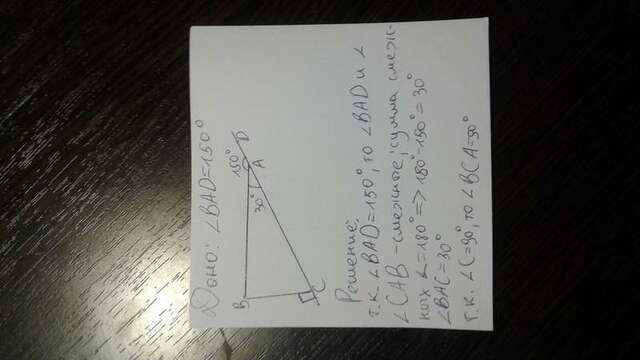 Дано: ∠BAD=150°
B
150°
D
30°
A
C
Решение:
т.к. ∠BAD=150°, то ∠BAD и ∠
∠CAB -смежные; сумма смеж-
ных ∠=180° => 180°-150°=30°
∠BAC=30°
т.к. ∠C=90°, то ∠BCA=90°